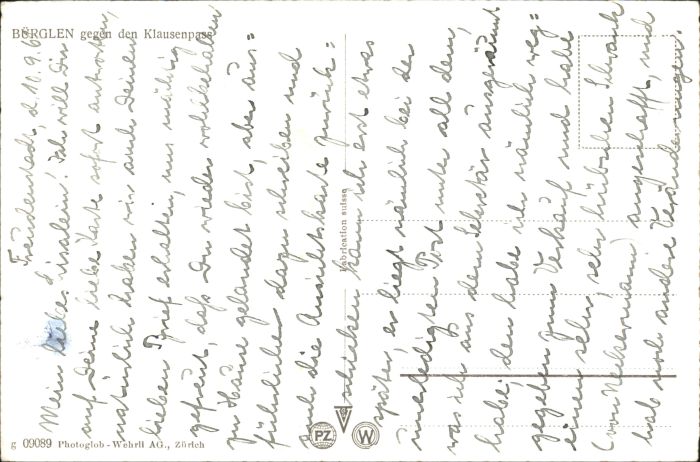 BÜRGLEN gegen den Klausenpass
Freudenstadt, d. 10.9.6
Mein liebes Lisalein! Ich will Dir
auf Deine liebe Karte sofort antworten,
natürlich haben wir auch Deinen
lieben Brief erhalten, uns mächtig
gefreut, daß Du wieder wohlbehalten
zu Hause gelandet bist, aber aus=
führlicher dazu schreiben und
auch die Ansichtskarte zurück=
schicken kann ich erst etwas
später, es liegt nämlich bei der
unerledigten Post unter all dem,
was ich aus dem Sekretär ausgeräumt
habe, den habe ich nämlich weg=
gegeben zum Verkauf und habe
einen sehr, sehr hübschen Schrank
(von Neckermann) angeschafft, und
hab viele andere Veränderungen.
Fabrication suisse
g 09089 Photoglob-Wehrli AG., Zürich
PZ
W